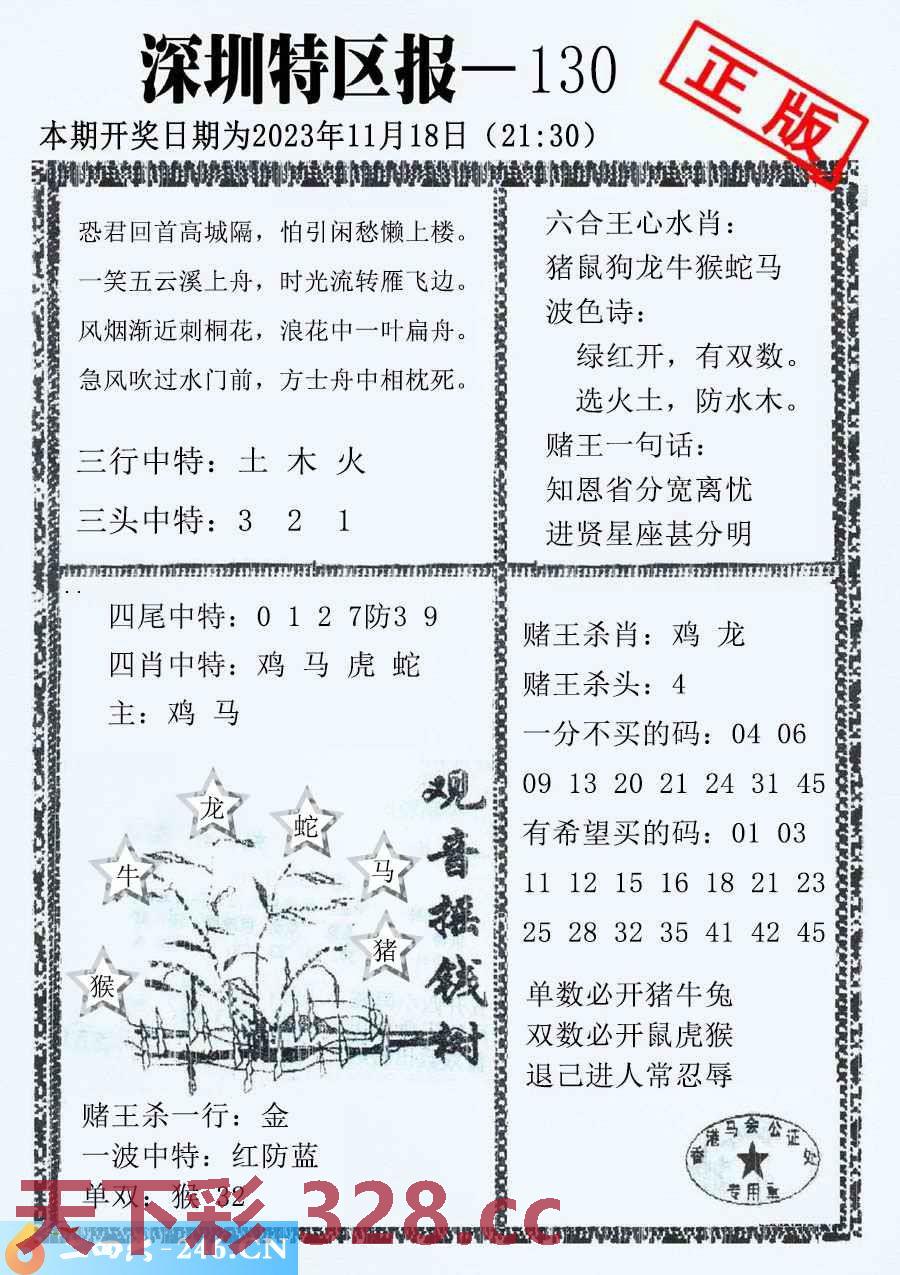 深圳特区报—130
正版
本期开奖日期为2023年11月18日（21:30）
恐君回首高城隔，怕引闲愁懒上楼。
一笑五云溪上舟，时光流转雁飞边。
风烟渐近刺桐花，浪花中一叶扁舟。
急风吹过水门前，方士舟中相枕死。
三行中特：土 木 火
三头中特：3 2 1
六合王心水肖：
猪鼠狗龙牛猴蛇马
波色诗：
绿红开，有双数。
选火土，防水木。
赌王一句话：
知恩省分宽离忧
进贤星座甚分明
四尾中特：0 1 2 7防3 9
四肖中特：鸡 马 虎 蛇
主：鸡 马
龙
蛇
牛
马
猪
猴
观音摇钱树
赌王杀一行：金
一波中特：红防蓝
单双：猴 32
赌王杀肖：鸡 龙
赌王杀头：4
一分不买的码：04 06
09 13 20 21 24 31 45
有希望买的码：01 03
11 12 15 16 18 21 23
25 28 32 35 41 42 45
单数必开猪牛兔
双数必开鼠虎猴
退己进人常忍辱
香港马会公证处
专用章
天下彩 328.cc
-246.CN